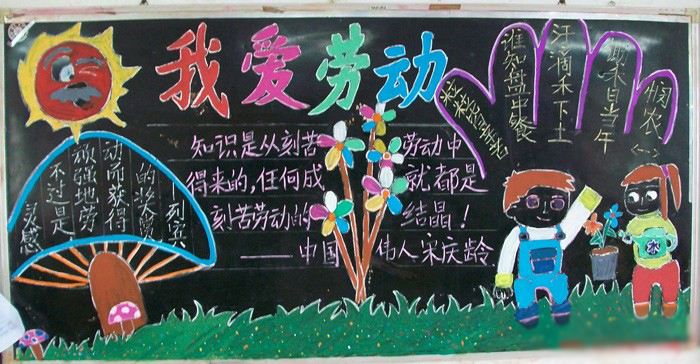 我爱劳动
知识是从刻苦劳动中
得来的,任何成就都是
刻苦劳动的结晶!
——中国伟人宋庆龄
灵感
不过是
顽强地劳
动而获得
的奖赏
列宾
悯农
<一>
锄禾日当午
汗滴禾下土
谁知盘中餐
粒粒皆辛苦
水